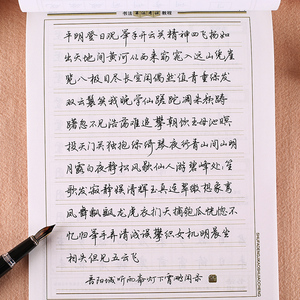 书法
教程
平明登日观举手开云关精神四飞扬如
出天地间黄河从西来窈窕入远山凭崖
览八极目尽长空闲偶然值青童绿发
双云鬟笑我晚学仙蹉跎凋朱颜踌
躇忽不见浩荡难追攀朝饮王母池暝
投天门关独抱绿绮琴夜行青山间山明
月露白夜静松风歇仙人游碧峰处笙
歌发寂静娱清辉玉真连翠微想象鸾
凤舞飘飖龙虎衣扪天摘匏瓜恍惚不
忆归举手弄清浅误攀织女机明晨坐
相失但见五云飞
岳阳城听雨斋灯下